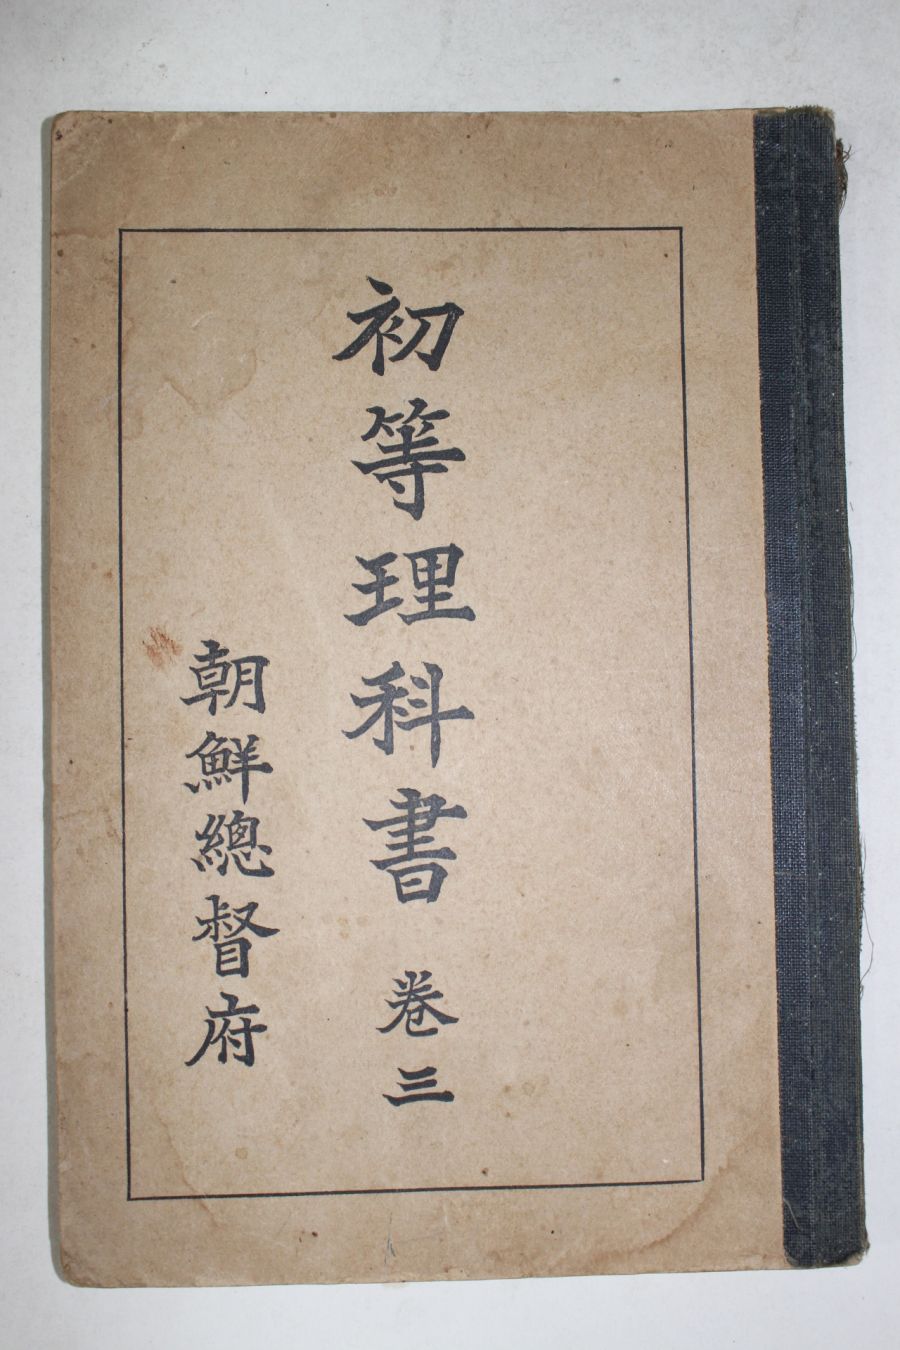 初等理科書 卷三
朝鮮總督府